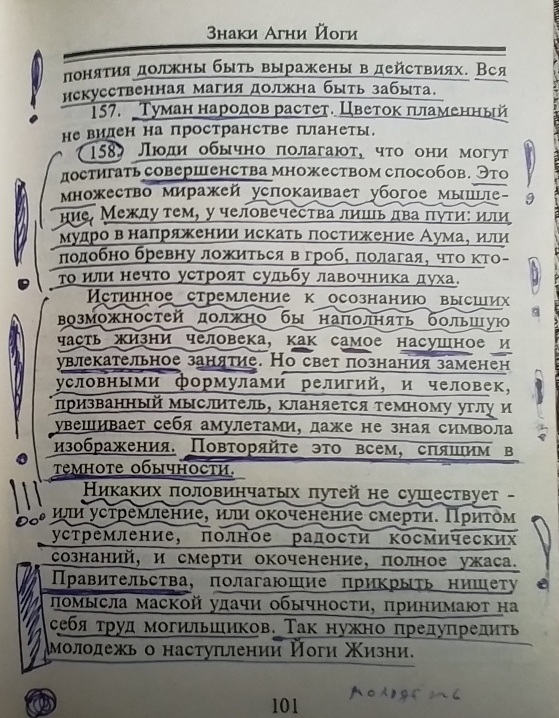 Знаки Агни Йоги
понятия должны быть выражены в действиях. Вся
искусственная магия должна быть забыта.
157. Туман народов растет. Цветок пламенный
не виден на пространстве планеты.
158. Люди обычно полагают, что они могут
достигать совершенства множеством способов. Это
множество миражей успокаивает убогое мышле-
ние. Между тем, у человечества лишь два пути: или
мудро в напряжении искать постижение Аума, или
подобно бревну ложиться в гроб, полагая, что кто-
то или нечто устроят судьбу лавочника духа.
Истинное стремление к осознанию высших
возможностей должно бы наполнять большую
часть жизни человека, как самое насущное и
увлекательное занятие. Но свет познания заменен
условными формулами религий, и человек,
призванный мыслитель, кланяется темному углу и
увешивает себя амулетами, даже не зная символа
изображения. Повторяйте это всем, спящим в
темноте обычности.
Никаких половинчатых путей не существует -
или устремление, или окоченение смерти. Притом
устремление, полное радости космических
сознаний, и смерти окоченение, полное ужаса.
Правительства, полагающие прикрыть нищету
помысла маской удачи обычности, принимают на
себя труд могильщиков. Так нужно предупредить
молодежь о наступлении Йоги Жизни.
101